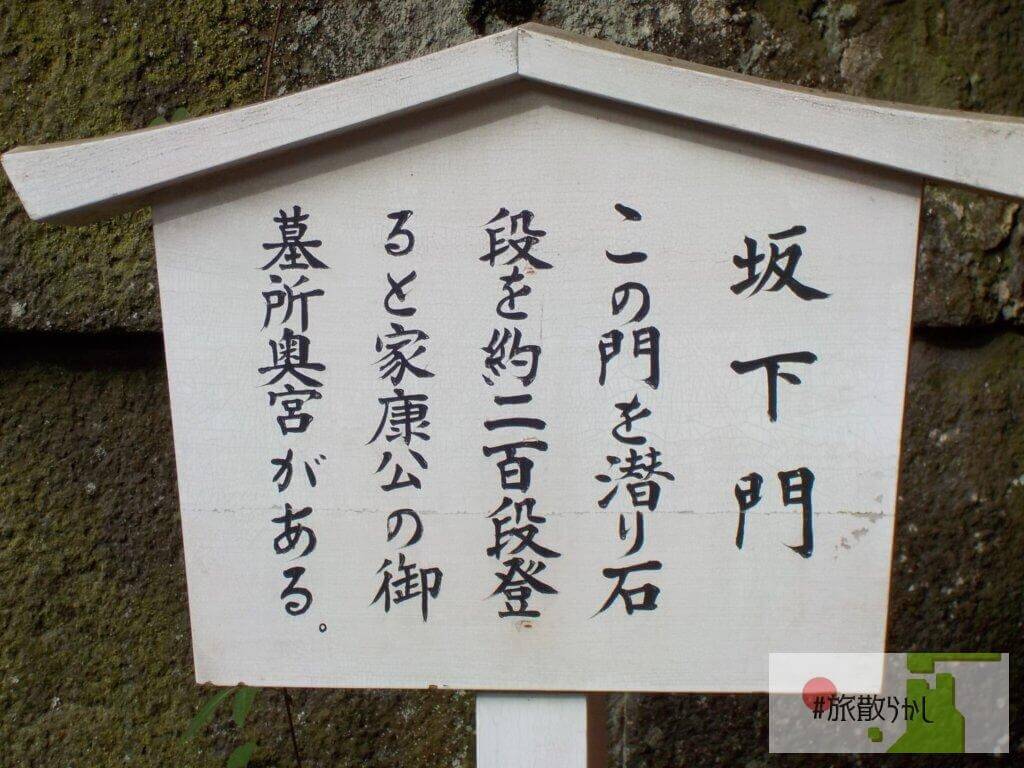 坂下門
この門を潜り石
段を約二百段登
ると家康公の御
墓所奥宮がある。
#旅散らかし